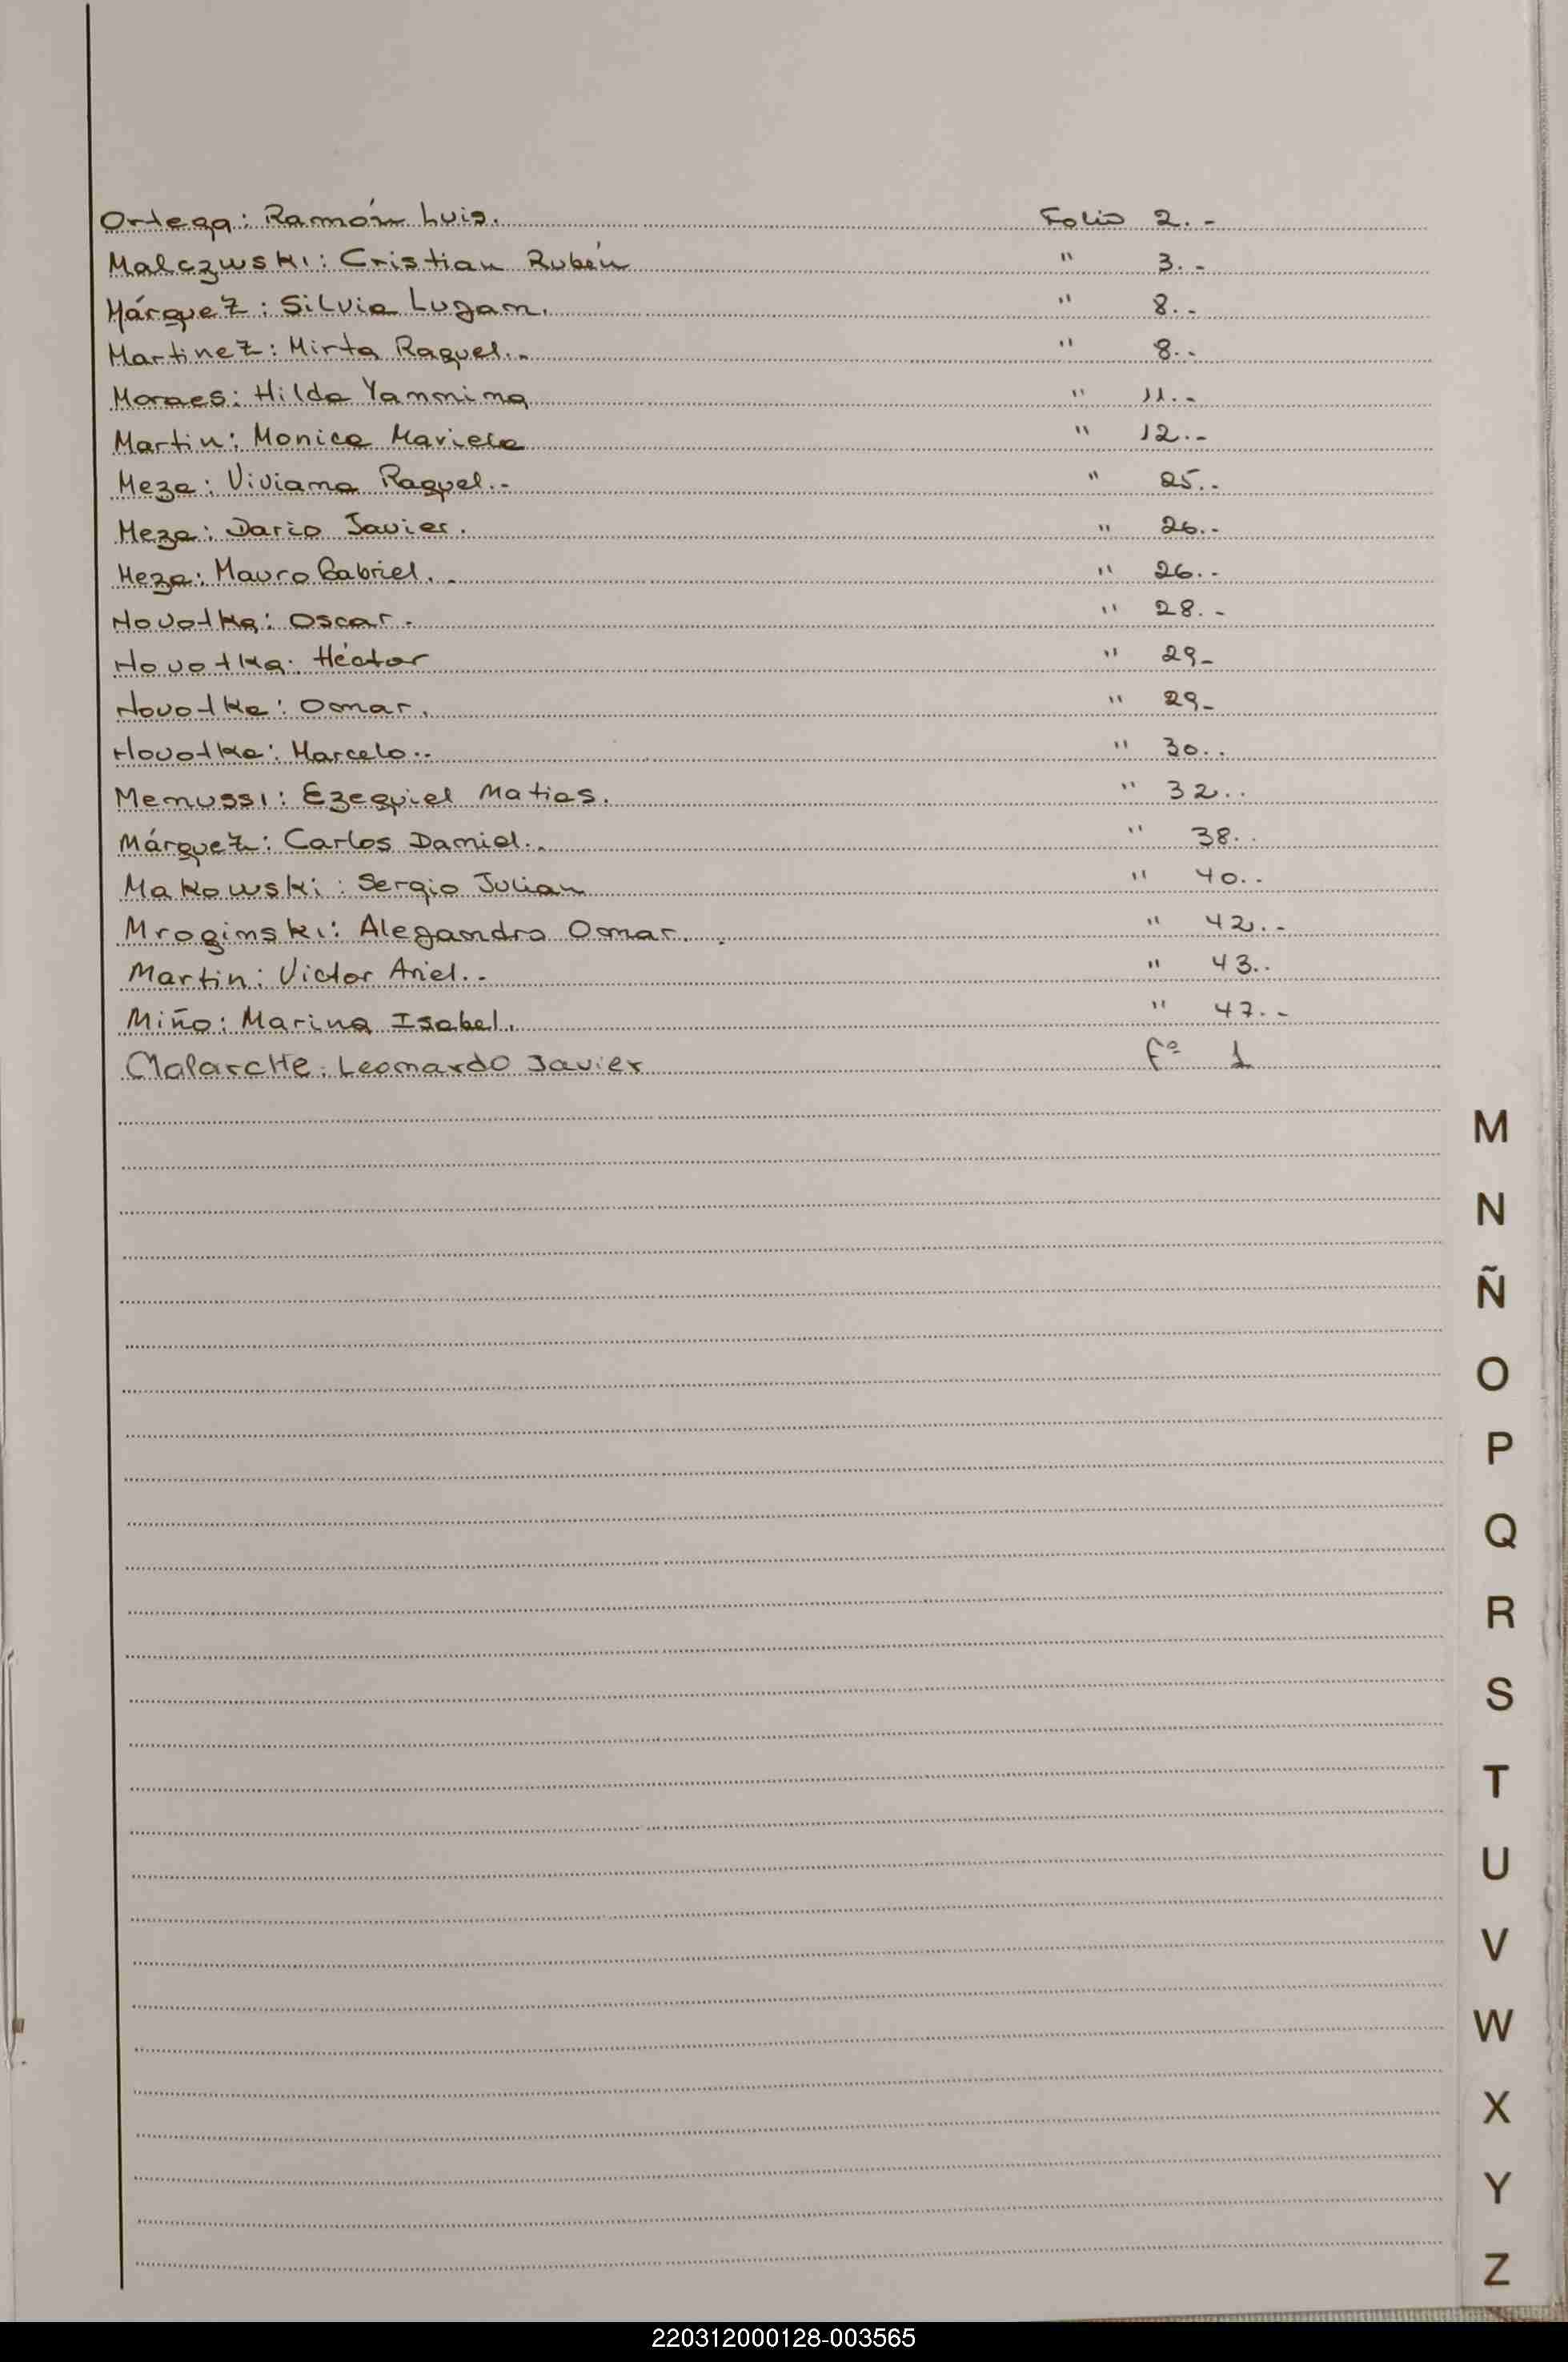 Ortega: Ramón Luis. Folio 2.-
Malczwski: Cristian Rubén " 3.-
Márquez: Silvia Lujan. " 8.-
Martinez: Mirta Raquel.- " 8.-
Moraes: Hilda Yannina " 11.-
Martin: Monica Mariela " 12.-
Meza: Viviana Raquel.- " 25.-
Meza: Dario Javier. " 26.-
Meza: Mauro Gabriel.- " 26.-
Novotka: Oscar.- " 28.-
Novotka: Héctor " 29-
Novotka: Omar. " 29-
Novotka: Marcelo.- " 30..
Menussi: Ezequiel Matias. " 32..
Márquez: Carlos Daniel.. " 38..
Makowski: Sergio Julian " 40..
Mroginski: Alejandro Omar. " 42.-
Martin: Victor Ariel.- " 43..
Miño: Marina Isabel. " 47.-
Malarche: Leonardo Javier Fº 1
M
N
Ñ
O
P
Q
R
S
T
U
V
W
X
Y
Z
220312000128-003565